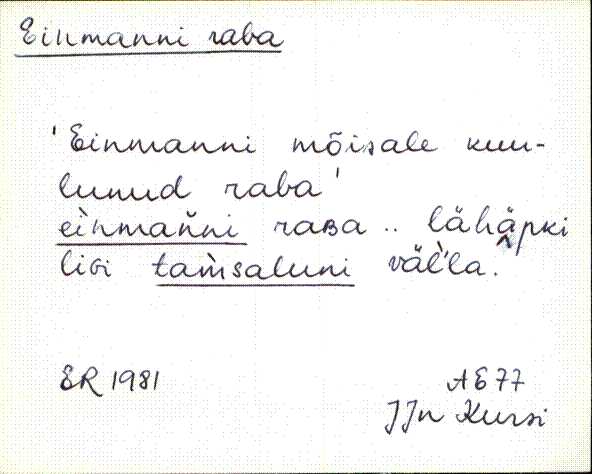 Einmanni raba
'Einmanni mõisale kuu-
lunud raba'
eìnmañni raʙa .. lähäpki
liɢi tam̀saluni väl̀'la.
ER 1981
AE 77
JJn Kursi